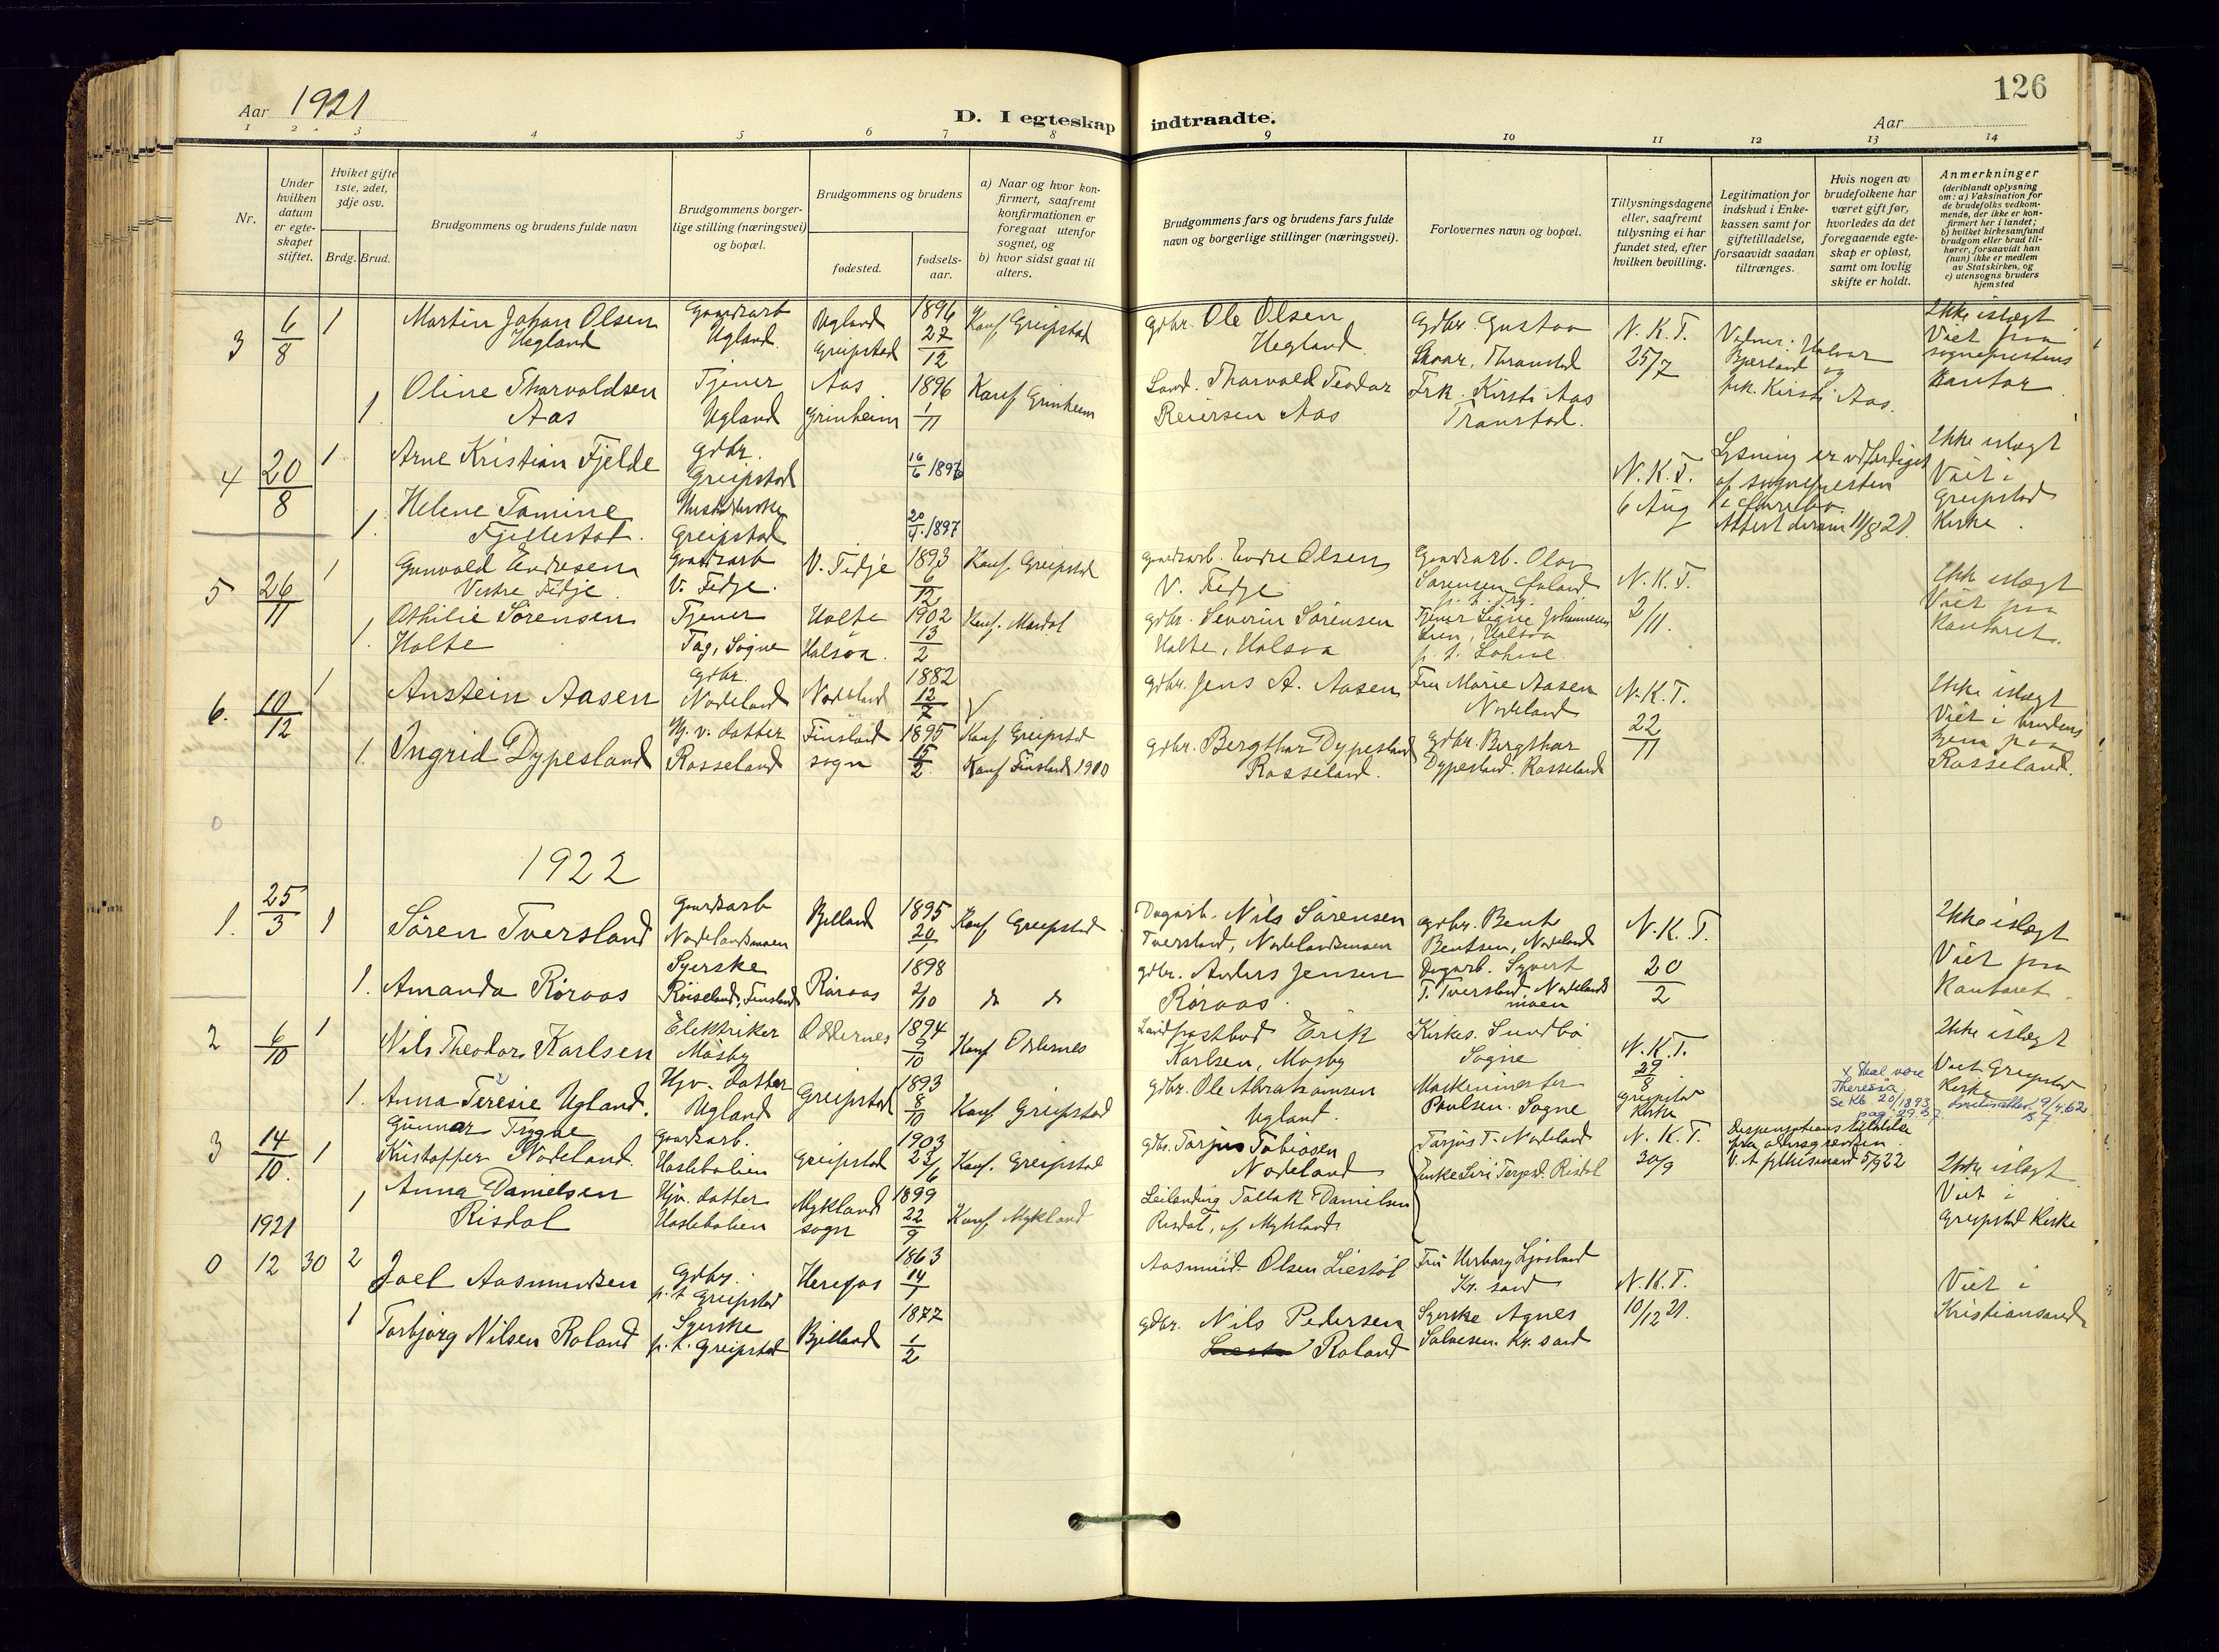 126
Aar 1921
D. I egteskap indtraadte.
Aar
1 2 3 4 5 6 7 8 9 10 11 12 13 14
Nr.
Under hvilken datum er egteskapet stiftet.
Hviket gifte 1ste, 2det, 3dje osv.
Brdg. Brud.
Brudgommens og brudens fulde navn
Brudgommens borgerlige stilling (næringsvei) og bopæl.
Brudgommens og brudens
fødested.
fødselsaar.
a) Naar og hvor konfirmert, saafremt konfirmationen er foregaat utenfor sognet, og
b) hvor sidst gaat til alters.
Brudgommens fars og brudens fars fulde navn og borgerlige stillinger (næringsvei).
Forlovernes navn og bopæl.
Tillysningsdagene eller, saafremt tillysning ei har fundet sted, efter hvilken bevilling.
Legitimation for indskud i Enkekassen samt for giftetilladelse, forsaavidt saadan tiltrænges.
Hvis nogen av brudefolkene har været gift før, hvorledes da det foregaaende egteskap er opløst, samt om lovlig skifte er holdt.
Anmerkninger
(deriblandt oplysning om: a) Vaksination for de brudefolks vedkommende, der ikke er konfirmert her i landet; b) hvilket kirkesamfund brudgom eller brud tilhører, forsaavidt han (hun) ikke er medlem av Statskirken, og c) utensogns bruders hjemsted
3 6/8 1 Martin Johan Olsen Ugland Gaardsarb Ugland Ugland Greipstad 1896 27/12 Konf. Greipstad gdbr. Ole Olsen Uegland Gdbr. Gustav Skaar, Thranstad N.K.T. 25/7 Ikke i slegt Viet paa sogneprestens kontor
1 Oline Thorvaldsen Aas Tjener Ugland Aas Grinheim 1896 1/11 Konf Grinheim Thorvald Teodor Reiersen Aas Frk. Kirsti Aas Transtad. Halvor Bjerland og frk. Kirsti Aas.
4 20/8 1 Arne Kristian Fjelde gdbr. Greipstad 16/6 1896 N.K.T. 6 Aug Lysning er utferdiget af sognepresten Attest derom 11/8 21. Ikke i slegt Viet i Greipstad Kirke.
1. Helene Tomine Fjellestad. Greipstad 20/4 1897
5 26/11 1 Gunvald Endresen Vestre Fidje. Gaardsarb V. Fidje. V. Fidje 1893 6/12 Konf. Greipstad Gaardsarb. Endre Olsen V. Fidje Gaardsarb. Olav Sørensen N.K.T. 2/11. Ikke i slegt Viet paa Kontoret.
1. Othilie Sørensen Holte Tjener Tag, Søgne Holte Halsøa. 1902 13/2 Konf. Mandal gdbr. Severin Sørensen Holte, Halsøa Tjener Signe Johannessen, Halsøa p. t. Lohne.
6. 10/12 1 Anstein Aasen gdbr. Nodeland Nodeland 1882 12/7 Konf Greipstad gdbr. Jens A. Aasen Fru Marie Aasen Nodeland N.K.T. 22/11 Ikke i slegt Viet i brudens hjem paa Rosseland.
1. Ingrid Dypesland Hj. v. datter Rosseland Finsland sogn 1895 15/2 Konf Finsland 1910 gdbr. Bergthor Dypesland Rosseland. gdbr. Bergthor Dypesland. Rosseland
0
1922
1. 25/3 1 Sören Tversland Gaardsarb Nodelandsmoen Bjelland 1895 20/1 Konf Greipstad Dagarb. Nils Sørensen Tversland, Nodelandsmoen gdbr. Bent Bentsen, Nodeland N.K.T. 20/2 Ikke i slegt Viet paa Kontoret.
1. Amanda Röraas Syerske Röiseland, Finsland Röraas 1898 2/10 do do gdbr. Anders Jensen Röraas. Dagarb. Syvert T. Tversland Nodelandsmoen
2 6/10 1 Nils Theodor Karlsen Elektriker Mosby Oddernes 1894 9/10 Konf Oddernes Landpostbud Erik Karlsen, Mosby Kirkes. Sundbø Søgne N.K.T. 29/8 Greipstad Kirke Ikke i slegt Viet Greipstad Kirke
1. Anna Teresie Ugland. Hjv. datter Ugland Greipstad 1893 8/10 Konf Greipstad gdbr. Ole Abrahamsen Ugland. Maskinmester Poulsen. Søgne x Skal være Theresia. Se Kb. 20/1893 pag. 29 19/4.62
3 14/10. 1 Gunnar Trygve Kristoffer Nodeland. Gaardsarb. Haslebalien Greipstad 1903 23/6 Konf. Greipstad gdbr. Tarjus Tobiasen Nodeland Tarjus T. Nodeland N.K.T. 30/9 Dispensationstilladelse fra aldersgrensen. V. A 5/9 22 Ikke i slegt Viet i Greipstad Kirke
1 Anna Danielsen Risdal Hjv. datter Haslebalien Mykland sogn 1899 22/9 Konf Mykland Leilending Tallak Danielsen Risdal, af Mykland. Enke Siri Risdal
1921
0 12 30 2 Joel Aasmundsen Gdbr. p. t Greipstad Herefos 1863 14/1 Aasmund Olsen Liestøl Fru Herborg Ljosland Kr. sand N.K.T. 10/12 21. Viet i Kristiansand
1 Torbjørg Nilsen Roland Syerske p. t. Greipstad Bjelland 1877 1/2 gdbr. Nils Pedersen Roland Syerske Agnes Salvesen. Kr. sand